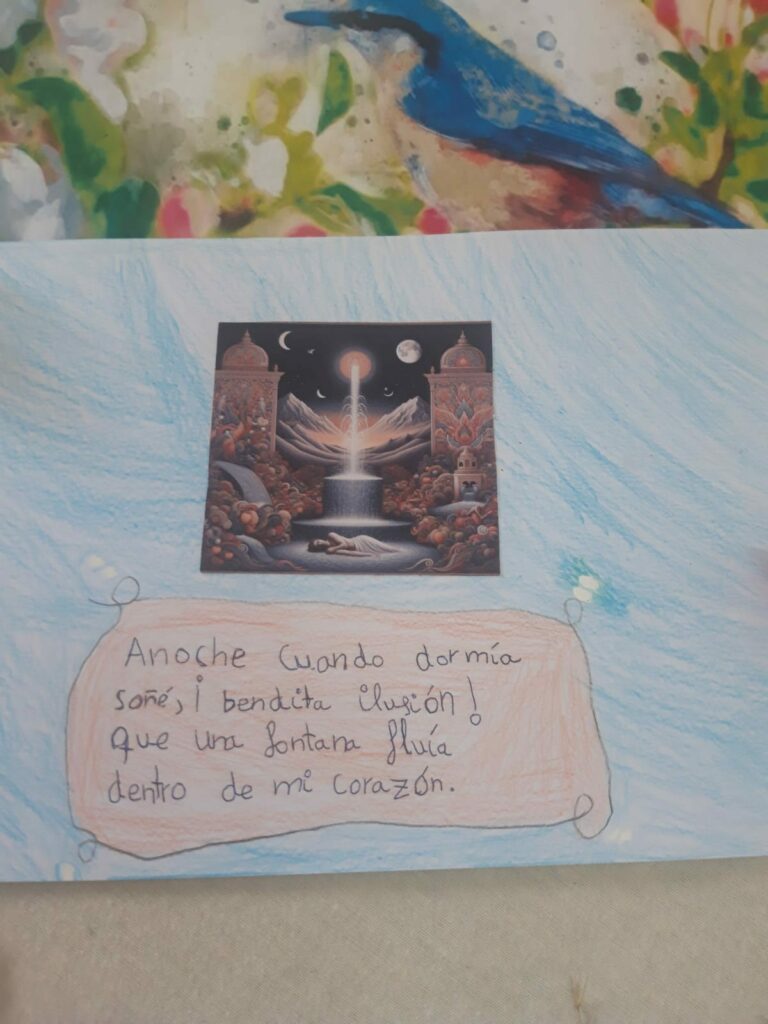 Anoche cuando dormía
soñé, ¡ bendita ilusión!
que una fontana fluía
dentro de mi corazón.